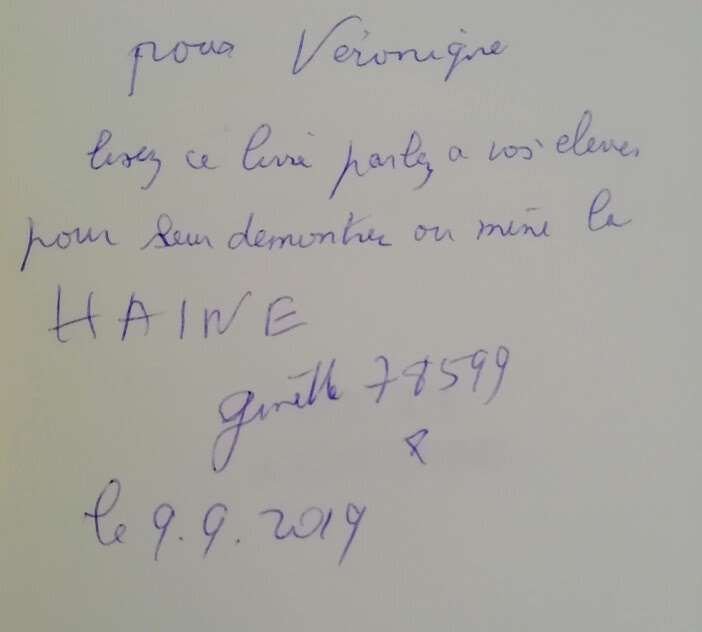 pour Véronique
lisez ce livre parlez a vos eleves
pour leur demontrer ou mène la
HAINE
ginette 78599
8
le 9.9.2019